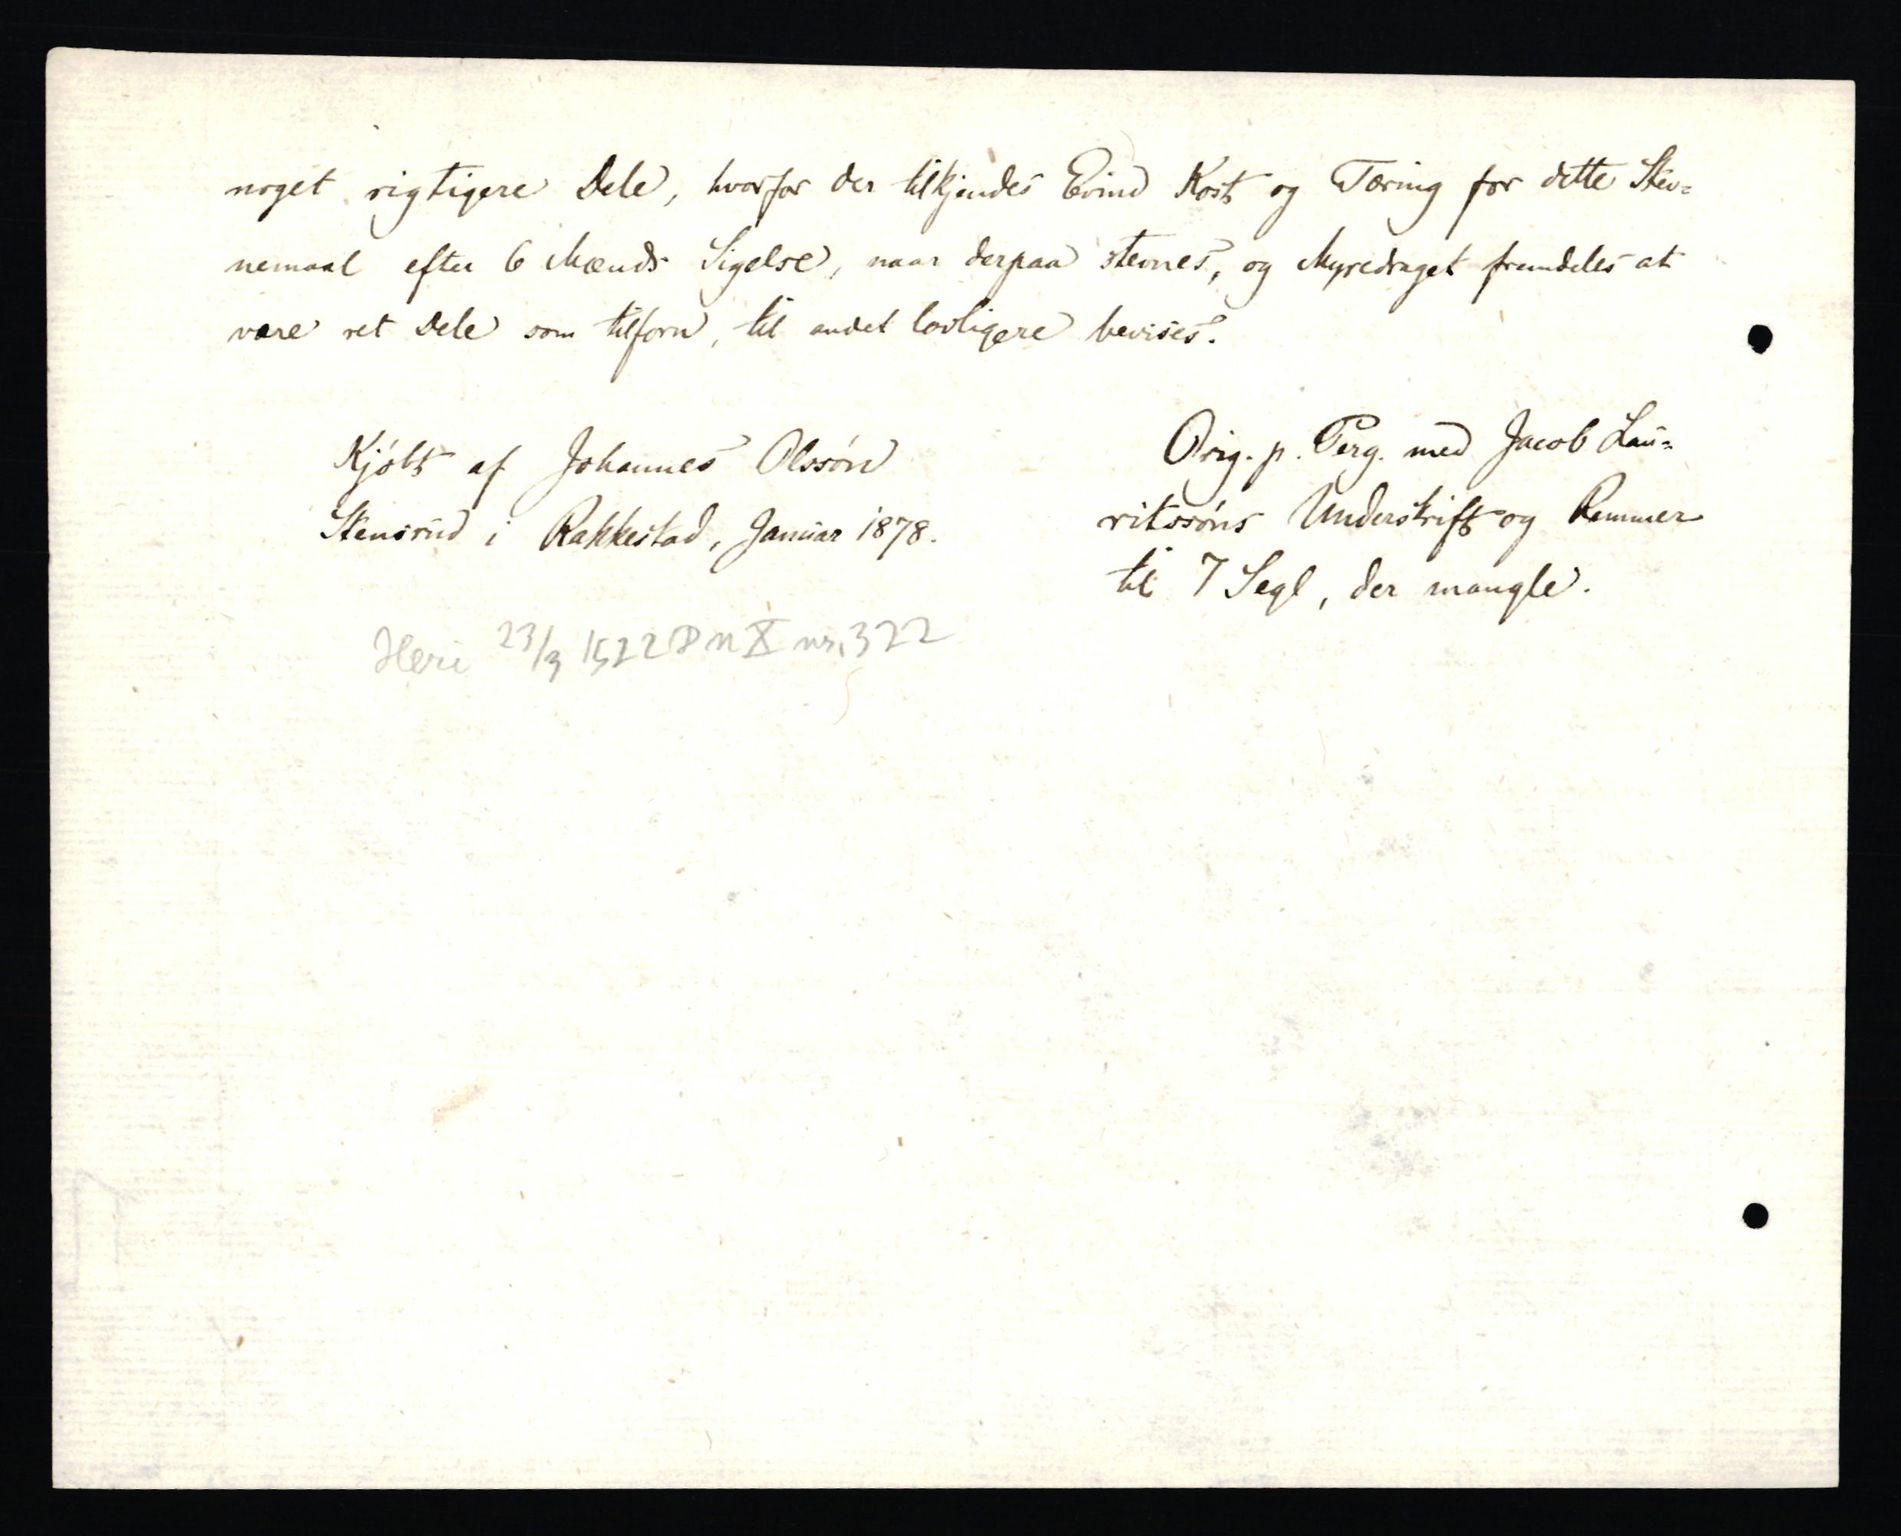 noget rigtigere Dele, hvorfor der tilkjendes Evind Kost og Tæring for dette Stev-
nemaal efter 6 Mænds Sigelse, naar derpaa stevnes, og Myredraget fremdeles at
være ret Dele som tilforn, til andet lovligere bevises.
Kjøbt af Johannes Olssøn
Stensrud i Rakkestad, Januar 1878.
Orig. p. Perg. med Jacob Lau-
ritssøns Underskrift og Remmer
til 7 Segl, der mangle.
Heri 23/9 1522 DN X nr. 322